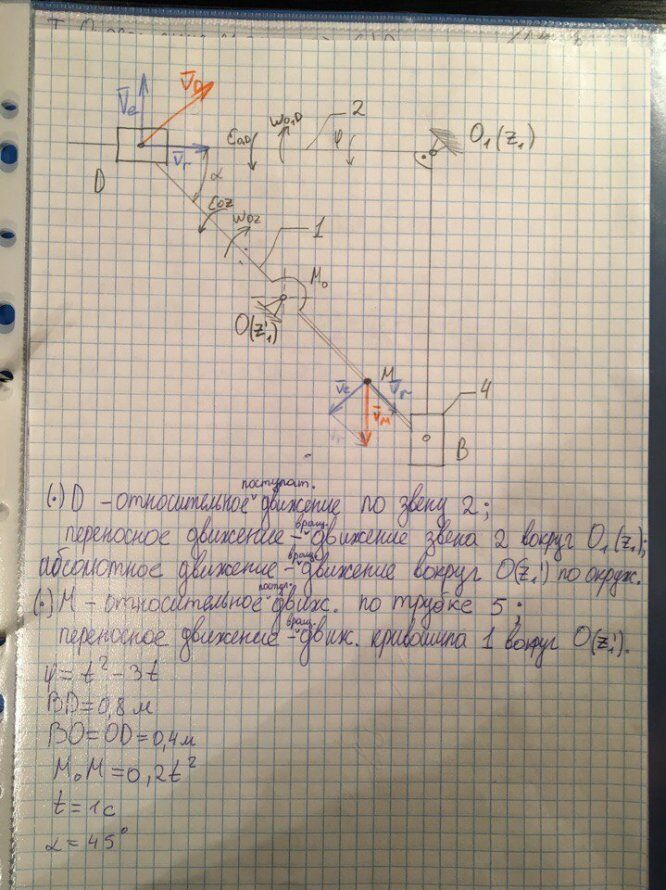 V̅e
V̅D
V̅r
D
α
εO₁D
ωO₁D
2
φ
O₁(z₁)
εOz
ωOz
1
M₀
O(z₁')
M
V̅e
V̅r
V̅M
4
B
(·) D – относительное поступат. движение по звену 2;
переносное движение – вращ. движение звена 2 вокруг O₁(z₁);
абсолютное движение – вращ. движение вокруг O(z₁') по окруж.
(·) M – относительное поступ. движ. по трубке 5;
переносное движение – вращ. движ. кривошипа 1 вокруг O(z₁').
φ = t² – 3t
BD = 0,8 м
BO = OD = 0,4 м
M₀M = 0,2t²
t = 1c
α = 45°